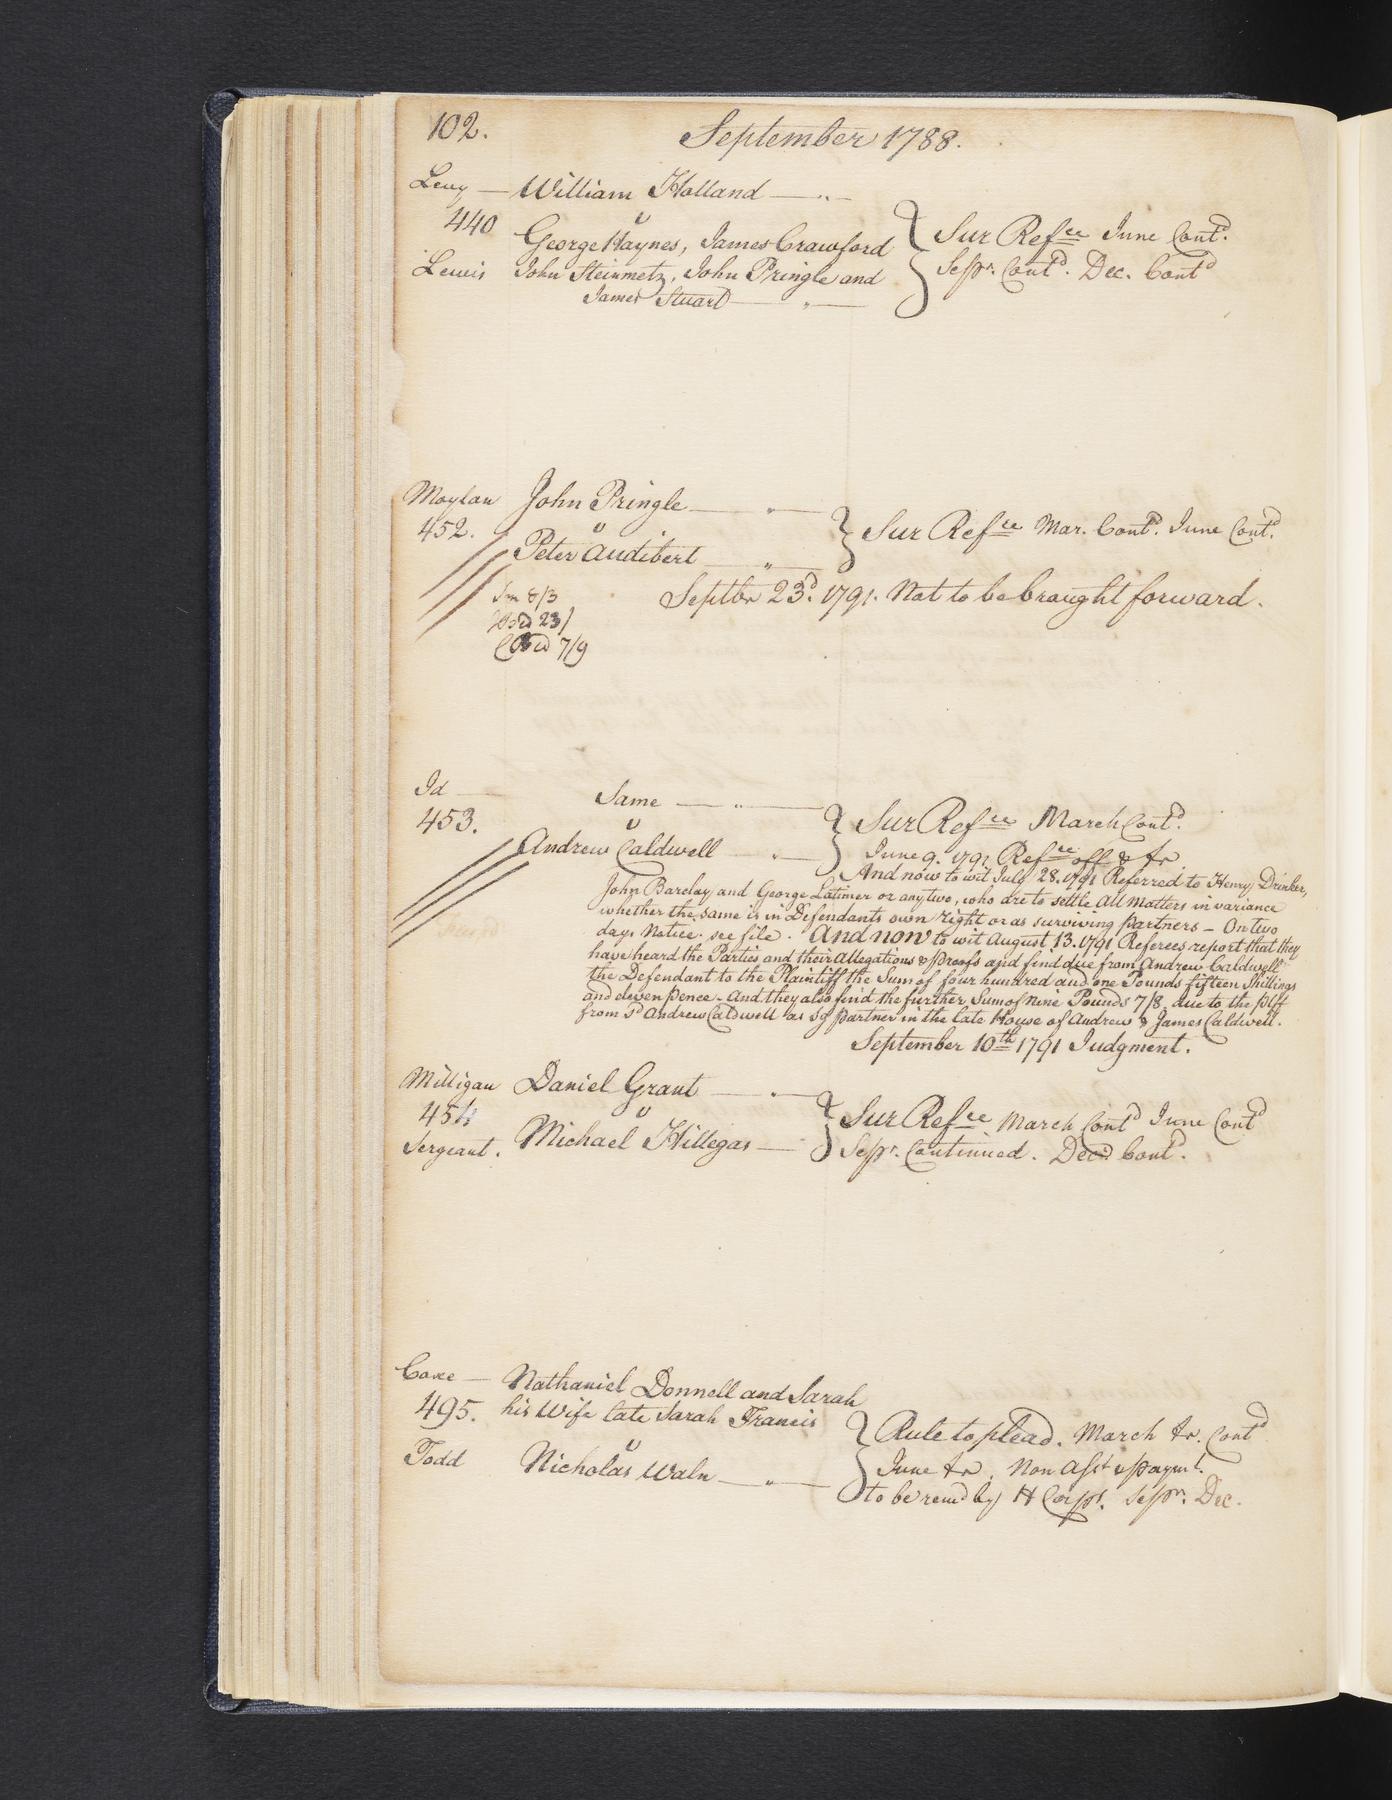 102.
September 1788.
Levy — William Holland —
440 v
George Haynes, James Crawford } Sur Refce June Contd.
Lewis John Steinmetz, John Pringle and Sepr. Contd. Dec. Contd
James Stuart —
Moylan John Pringle —
452. v } Sur Refce Mar. Contd. June Contd.
Peter Audibert —
Septbr 23d. 1791. Not to be brought forward.
8/3
23/
7/9
Id — Same —
453. v } Sur Refce March Contd.
Andrew Caldwell — June 9. 1791 Refce off & fr
And now to wit July 28. 1791 Referred to Henry Drinker,
John Barclay and George Latimer or any two, who are to settle all Matters in variance
whether the same is in Defendants own right or as surviving partners — On two
days Notice. see file. And now to wit August 13. 1791 Referees report that they
have heard the Parties and their Allegations & proofs and find due from Andrew Caldwell
the Defendant to the Plaintiff the Sum of four hundred and one Pounds fifteen Shillings
and eleven pence - And they also find the further Sum of nine Pounds 7/8 due to the Plff
from sd Andrew Caldwell as sg partner in the late House of Andrew & James Caldwell.
September 10th 1791 Judgment.
Milligan Daniel Grant —
454 v } Sur Refce March Contd June Contd
Sergeant. Michael Hillegas — Sepr. Continued. Decr Contd.
Coxe — Nathaniel Donnell and Sarah
495. his Wife late Sarah Francis } Rule to plead. March fr. Contd
v
Todd Nicholas Waln — June fr. Non Asst & paymt.
to be remd by H Corps. Sepr. Dec.